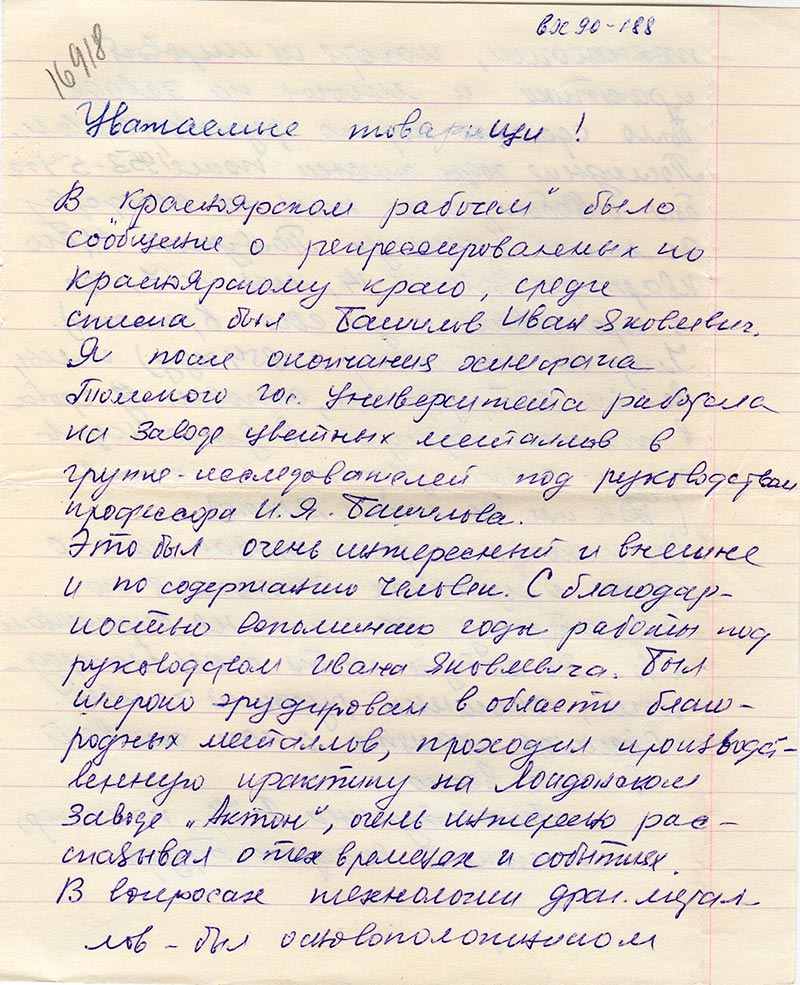 вх 90-188
16918
Уважаемые товарищи!
В "Красноярском рабочем" было
сообщение о репрессированных по
Красноярскому краю, среди
списка был Башилов Иван Яковлевич.
Я после окончания химфака
Томского Гос. Университета работала
на заводе цветных металлов в
группе-исследователей под руководством
профессора И.Я. Башилова.
Это был очень интересный и внешне
и по содержанию человек. С благодар-
ностью вспоминаю годы работы под
руководством Ивана Яковлевича. Был
широко эрудирован в области благо-
родных металлов, проходил производст-
венную практику на Лондонском
заводе „Актон", очень интересно рас-
сказывал о тех временах и событиях.
В вопросах технологии драг. метал-
лов - был основоположником